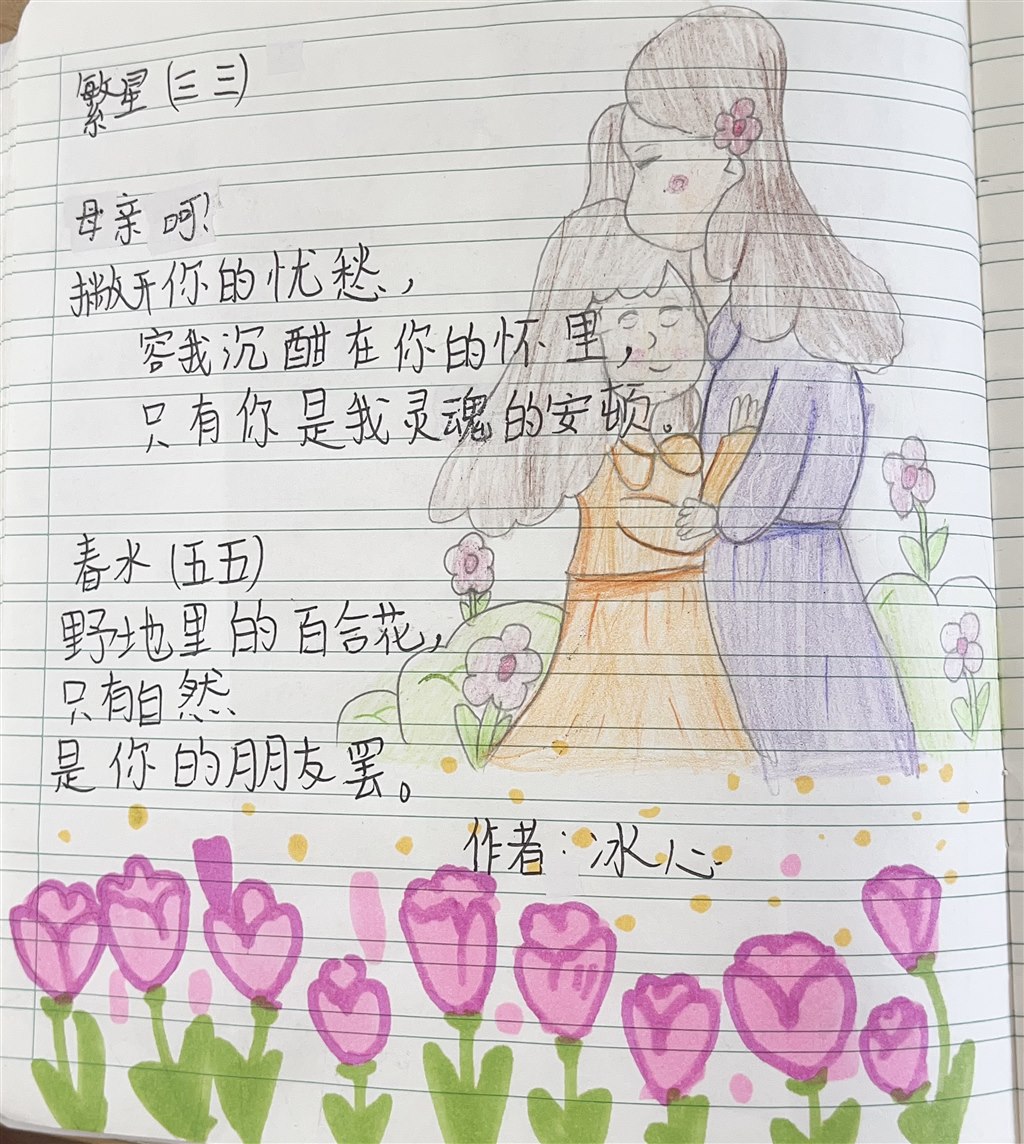 繁星(三三)
母亲呵!
撇开你的忧愁,
容我沉酣在你的怀里,
只有你是我灵魂的安顿。
春水(五五)
野地里的百合花,
只有自然
是你的朋友罢。
作者:冰心